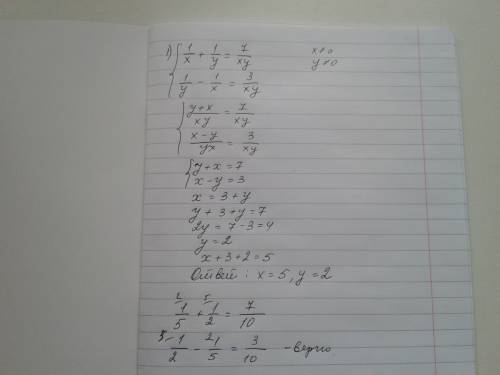 1) { 1/x + 1/y = 7/xy   x≠0
1/y - 1/x = 3/xy   y≠0
{ y+x/xy = 7/xy
x-y/yx = 3/xy
{ y+x=7
x-y=3
x = 3+y
y+3+y=7
2y = 7-3=4
y=2
x+3+2=5
Ответ: x=5, y=2
2 1/5 + 5 1/2 = 7/10
5 1/2 - 2 1/5 = 3/10 - верно